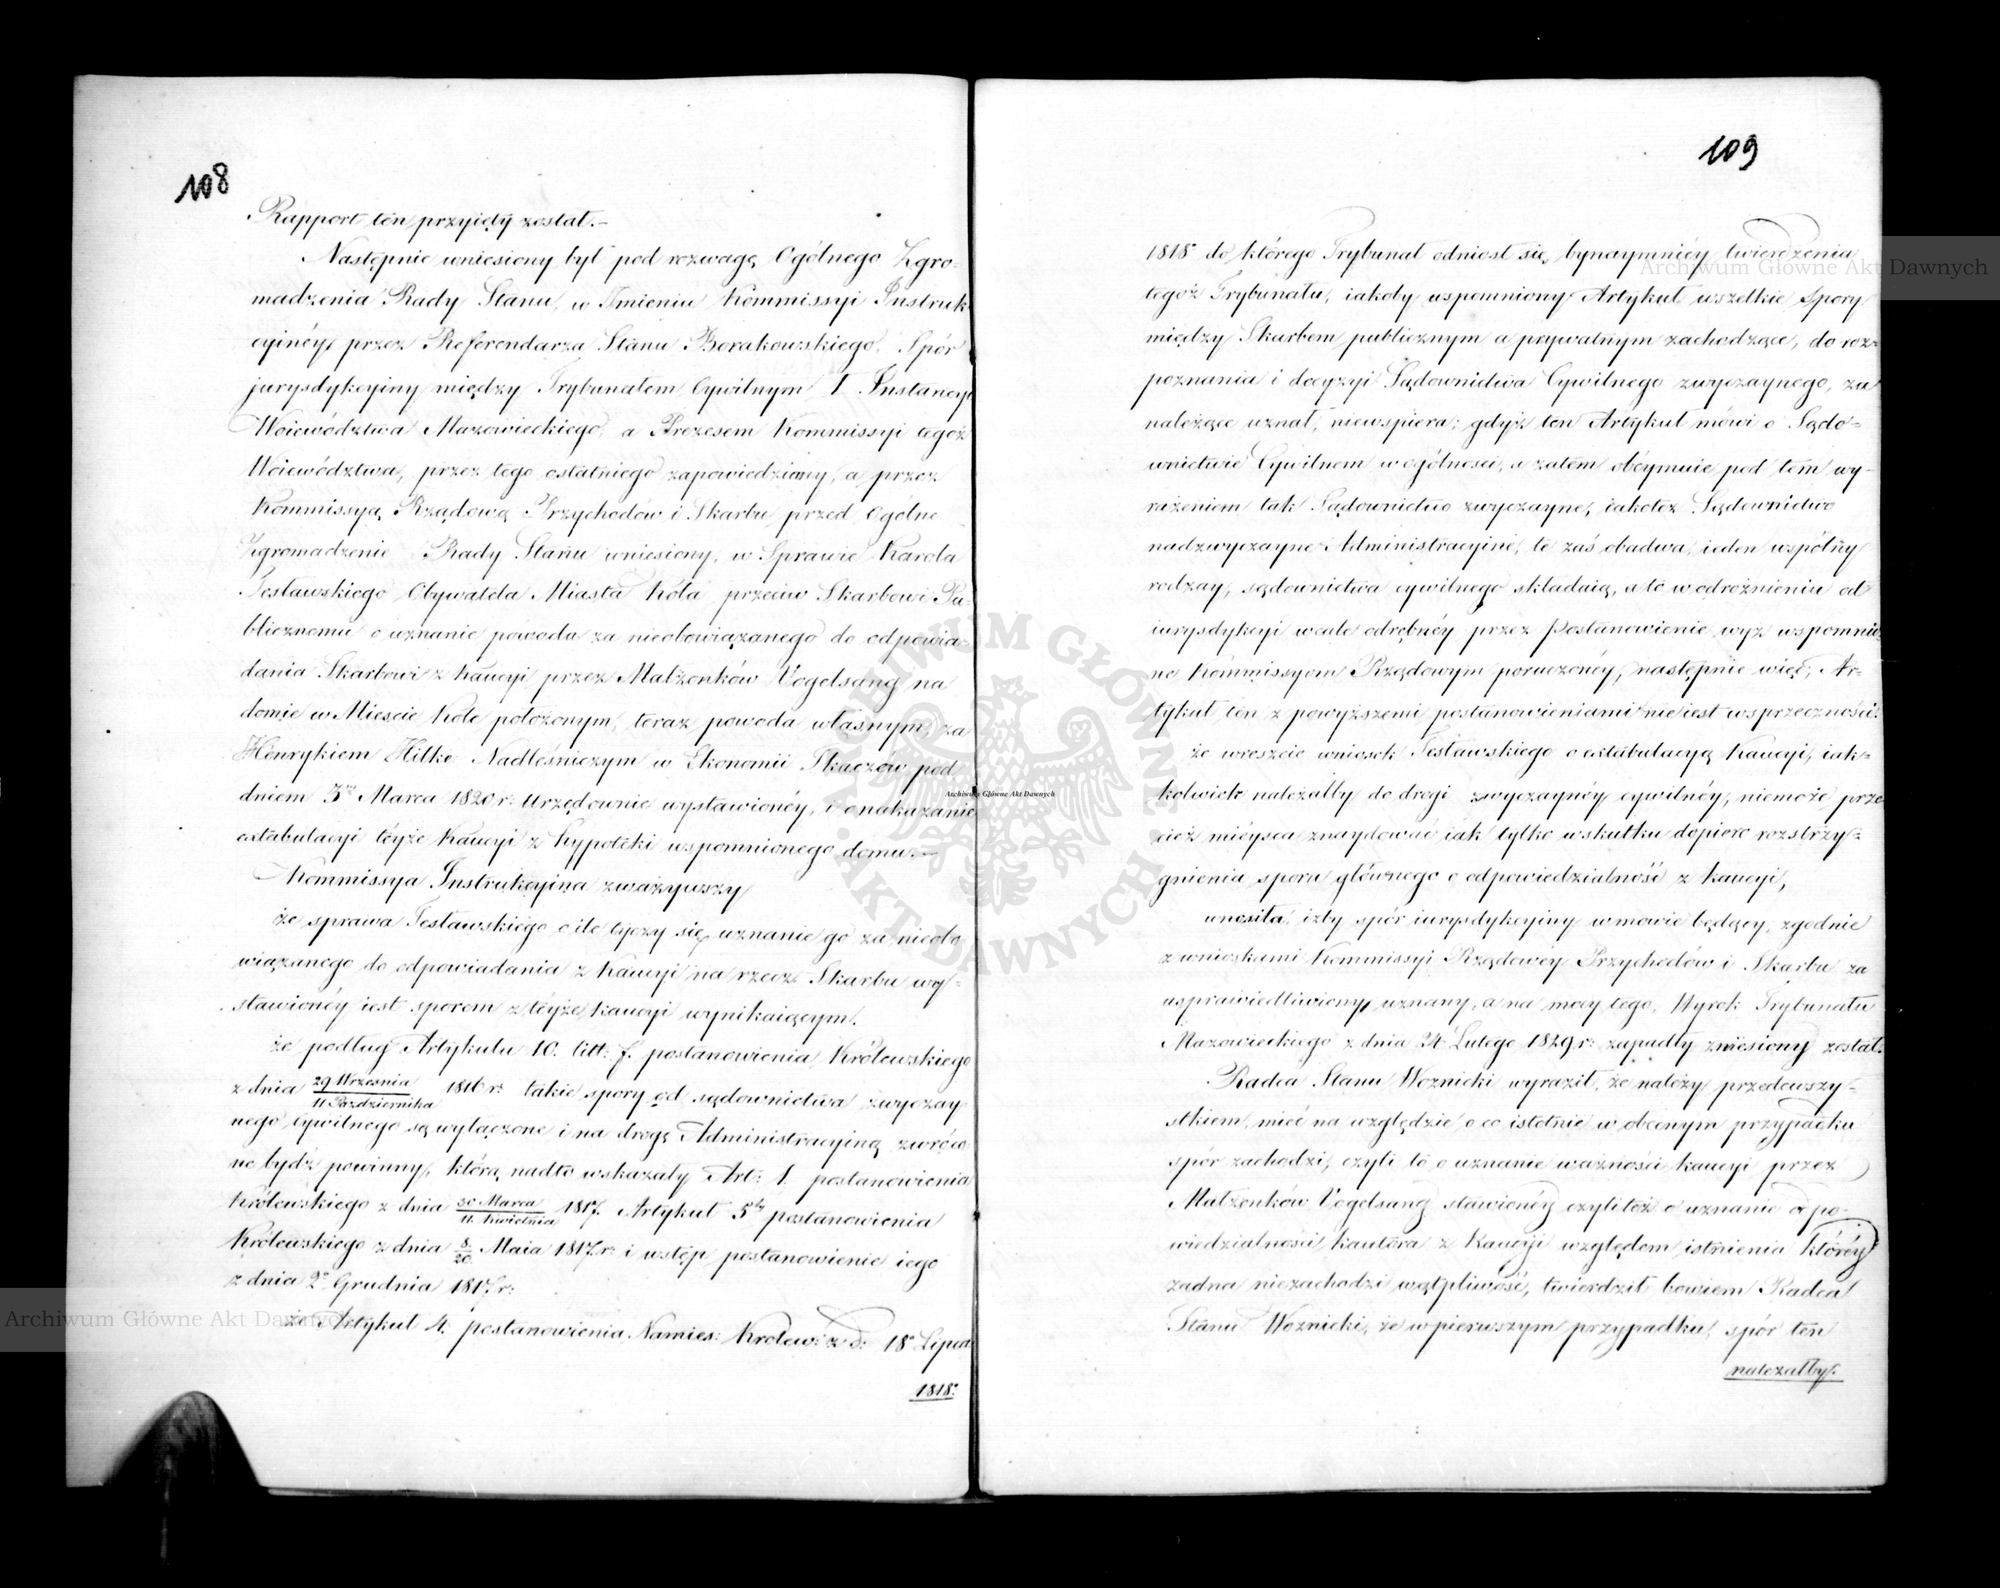 108
Rapport ten przyięty został.—
Następnie wniesiony był pod rozwagę Ogólnego Zgro-
madzenia Rady Stanu, w Imieniu Kommissyi Instruk
cyinéy przez Referendarza Stanu Borakowskiego, Spór
jurysdykcyiny między Trybunałem Cywilnym I. Instancyi
Woiewództwa Mazowieckiego, a Prezesem Kommissyi tegoż
Woiewództwa, przez tego ostatniego zapowiedziany, a przez
Kommissyą Rządową Przychodów i Skarbu przed Ogólne
Zgromadzenie Rady Stanu wniesiony, w Sprawie Karola
Testawskiego Obywatela Miasta Koła przeciw Skarbowi Pu-
blicznemu o uznanie powoda za nieobowiązanego do odpowia-
dania Skarbowi z kaucyi przez Małżonków Vogelsang na
domie w Mieście Kole położonym, teraz powoda własnym, za
Henrykiem Hilke Nadleśniczym w Ekonomii Tkaczów pod
dniem 3 Marca 1820 r: Urzędownie wystawionéy, i o nakazanie
extabulacyi téyże Kaucyi z hypoteki wspomnionego domu.—
Kommissya Instrukcyina zważywszy
że sprawa Testawskiego o ile tyczy się uznanie go za nieobo
wiązanego do odpowiadania z Kaucyi na rzecz Skarbu wy-
stawionéy iest sporem z téyże kaucyi wynikaiącym.
że podług Artykułu 10. litt: f. postanowienia Królewskiego
z dnia 29 Września / 11 Października 1816 r: takie spory od sądownictwa zwyczay
nego Cywilnego są wyłączone i na drogę Administracyiną zwróco
ne bydź powinny, którą nadto wskazały Art: 1. postanowienia
Królewskiego z dnia 30 Marca / 11. Kwietnia 1817. Artykuł 5ty postanowienia
Królewskiego z dnia 8/20 Maia 1817. r: i wstęp postanowienie iego
z dnia 2o Grudnia 1817. r:
że Artykuł 4. postanowienia Namies: Królew: z d: 18o Lipca
1818o
109
1818o do którego Trybunał odniosł się, bynaymniéy twierdzenia
tegoż Trybunału, iakoby wspomniony Artykuł wszelkie spory
między Skarbem publicznym a prywatnym zachodzące, do roz-
poznania i decyzyi Sądownictwa Cywilnego zwyczaynego, za
należące uznał, niewspiera; gdyż ten Artykuł mówi o Sądo-
wnictwie Cywilnem w ogólności, a zatem obeymuie pod tem wy-
rażeniem tak Sądownictwo zwyczayne, iakoteż Sądownictwo
nadzwyczayne Administracyine, te zaś obadwa ieden wspólny
rodzay, sądownictwa cywilnego składaią, a to w odróżnieniu od
iurysdykcyi wcale odrębnéy przez Postanowienie wyż wspomnio
ne Kommissyom Rządowym poruczonéy, następnie więc, Ar-
tykuł ten z powyższemi postanowieniami nie iest w sprzeczności.
że wreszcie wniosek Testawskiego o extabulacyą Kaucyi, iak-
kolwiek należałby do drogi zwyczaynéy cywilnéy, niemoże prze
cież mieysca znaydować iak tylko wskutku dopiero rozstrzy-
gnienia sporu głównego o odpowiedzialność z kaucyi,
wnosiła, iżby spór iurysdykcyiny w mowie będący, zgodnie
z wnioskami Kommissyi Rządowéy Przychodów i Skarbu za
usprawiedliwiony uznany, a na mocy tego, Wyrok Trybunału
Mazowieckiego z dnia 24 Lutego 1829 r: zapadły zniesiony został.
Radca Stanu Woznicki wyraził, że należy przedewszy-
stkiem, mieć na względzie o co istotnie w obecnym przypadku
spór zachodzi, czyli to o uznanie ważności kaucyi przez
Małżonków Vogelsang stawionéy czyliteż o uznanie odpo-
wiedzialności kautora z Kaucyi względem istnienia któréy
żadna niezachodzi wątpliwość, twierdził bowiem Radca
Stanu Woznicki, że w pierwszym przypadku, spór ten
należałby.